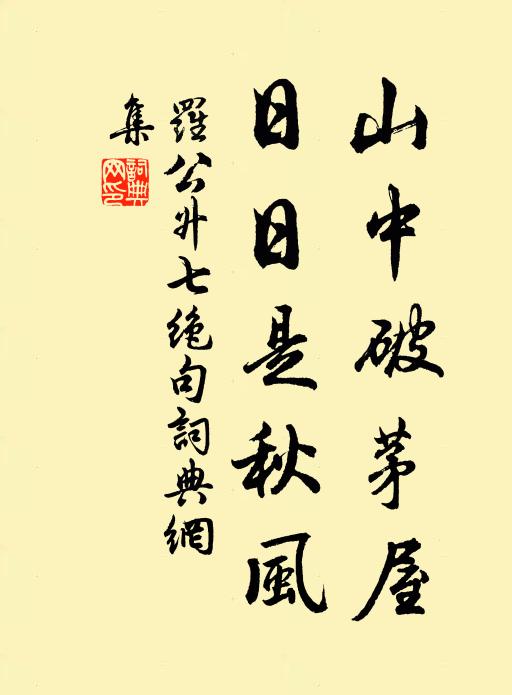 山中破茅屋
日日是秋風
羅公升七絶句詞典網
集
詞典網印